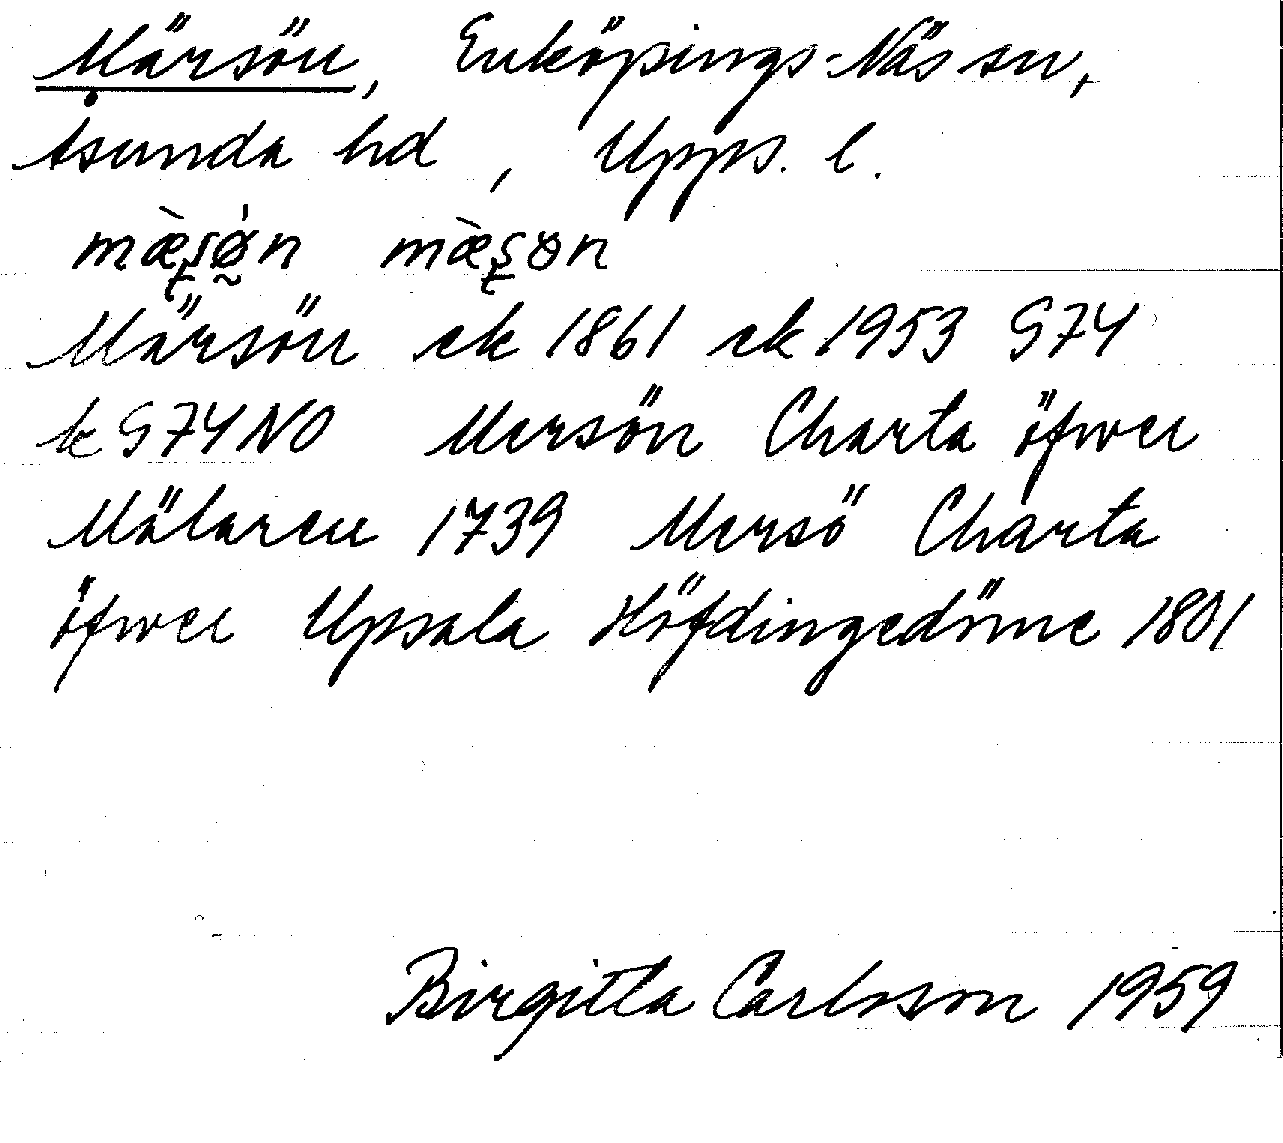 Märsön, Enköpings-Näs sn,
Åsunda hd, Upps. l.
Märsön ek 1861 ek 1953 S74
k S74NO Mersön Charta öfwer
Mälaren 1739 Mersö Charta
öfwer Upsala Höfdingedöme 1801
Birgitta Carlsson 1959